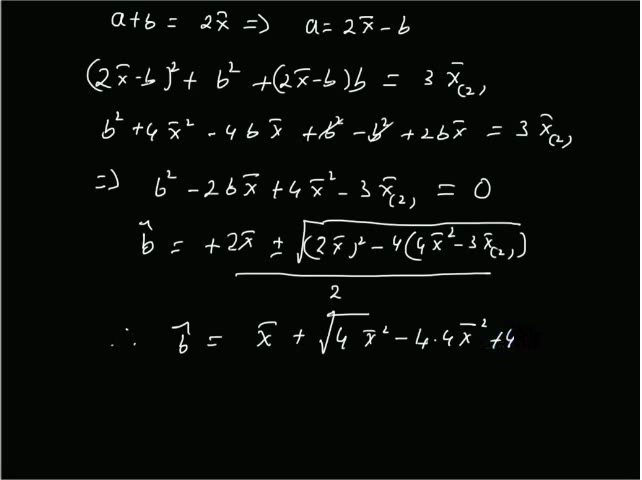 a+b = 2x̄ => a = 2x̄-b
(2x̄-b)² + b² + (2x̄-b)b = 3 x̄₍₂₎
b² + 4x̄² - 4bx̄ + b² - b² + 2bx̄ = 3 x̄₍₂₎
=> b² - 2bx̄ + 4x̄² - 3x̄₍₂₎ = 0
b̂ = +2x̄ ± √((2x̄)² - 4(4x̄² - 3x̄₍₂₎))
2
∴ b̂ = x̄ + √(4 x̄² - 4·4x̄² + 4